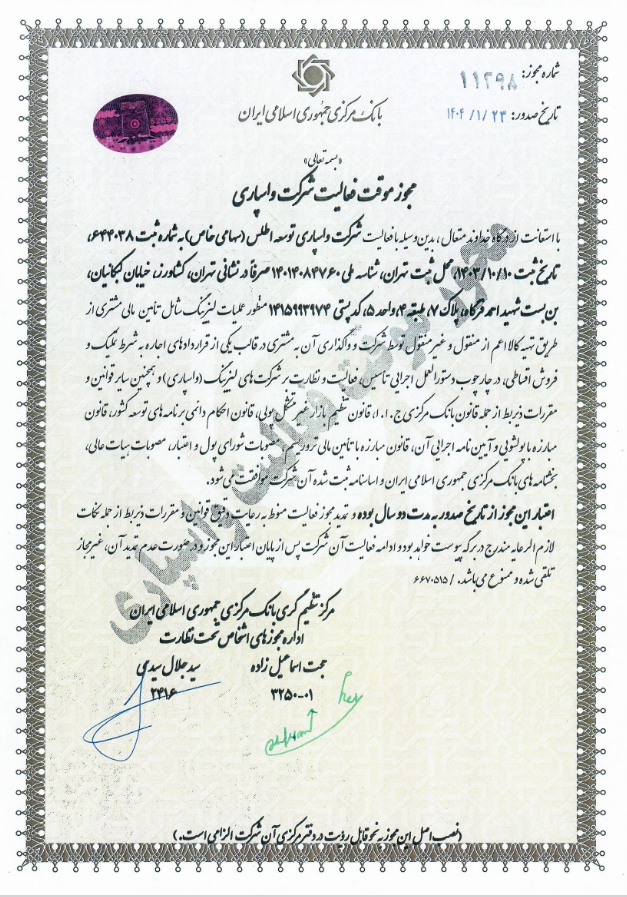 شماره مجوز: ۱۱۲۹۸
تاریخ صدور: ۱۴۰۴/۱/۲۳
بانک مرکزی جمهوری اسلامی ایران
«بسمه تعالی»
مجوز موقت فعالیت شرکت واسپاری
با استعانت از درگاه خداوند متعال، بدین وسیله با فعالیت شرکت واسپاری توسعه اطلس (سهامی خاص) به شماره ثبت ۶۴۴۰۳۸،
تاریخ ثبت ۱۴۰۳/۱۰/۱۰، محل ثبت تهران، شناسه ملی ۱۴۰۱۴۰۸۴۷۶۰ صرفاً در نشانی تهران، کشاورز، خیابان کبکانیان،
بن بست شهید احمد فرگاه، پلاک ۷، طبقه ۴، واحد ۵، کد پستی ۱۴۱۵۹۹۳۹۷۴ منظور عملیات لیزینگ شامل تأمین مالی مشتری از
طریق تهیه کالا اعم از منقول و غیرمنقول توسط شرکت و واگذاری آن به مشتری در قالب یکی از قراردادهای اجاره به شرط تملیک و
فروش اقساطی، در چارچوب دستورالعمل اجرایی تأسیس، فعالیت و نظارت بر شرکت های لیزینگ (واسپاری) و همچنین سایر قوانین و
مقررات ذیربط از جمله قانون بانک مرکزی ج.ا.ا، قانون تنظیم بازار غیرمتشکل پولی، قانون احکام دائمی برنامه های توسعه کشور، قانون
مبارزه با پولشویی و آیین نامه اجرایی آن، قانون مبارزه با تأمین مالی تروریسم، مصوبات شورای پول و اعتبار، مصوبات هیات عالی،
بخشنامه های بانک مرکزی جمهوری اسلامی ایران و اساسنامه ثبت شده آن شرکت موافقت می شود.
اعتبار این مجوز از تاریخ صدور به مدت دو سال بوده و تمدید مجوز فعالیت منوط به رعایت دقیق قوانین و مقررات ذیربط از جمله نکات
لازم الرعایه مندرج در برگه پیوست خواهد بود و ادامه فعالیت آن شرکت پس از پایان اعتبار این مجوز و در صورت عدم تمدید آن، غیرمجاز
تلقی شده و ممنوع می باشد. / ۶۶۷۰۵۱۵
مرکز تنظیم گری بانک مرکزی جمهوری اسلامی ایران
اداره مجوزهای اشخاص تحت نظارت
حجت اسماعیل زاده سید جلال سیدی
۳۲۵۰-۰۱ ۲۴۱۶
(نصب اصل این مجوز به نحو قابل رؤیت در دفتر مرکزی آن شرکت الزامی است.)
مجوز موقت فعالیت واسپاری